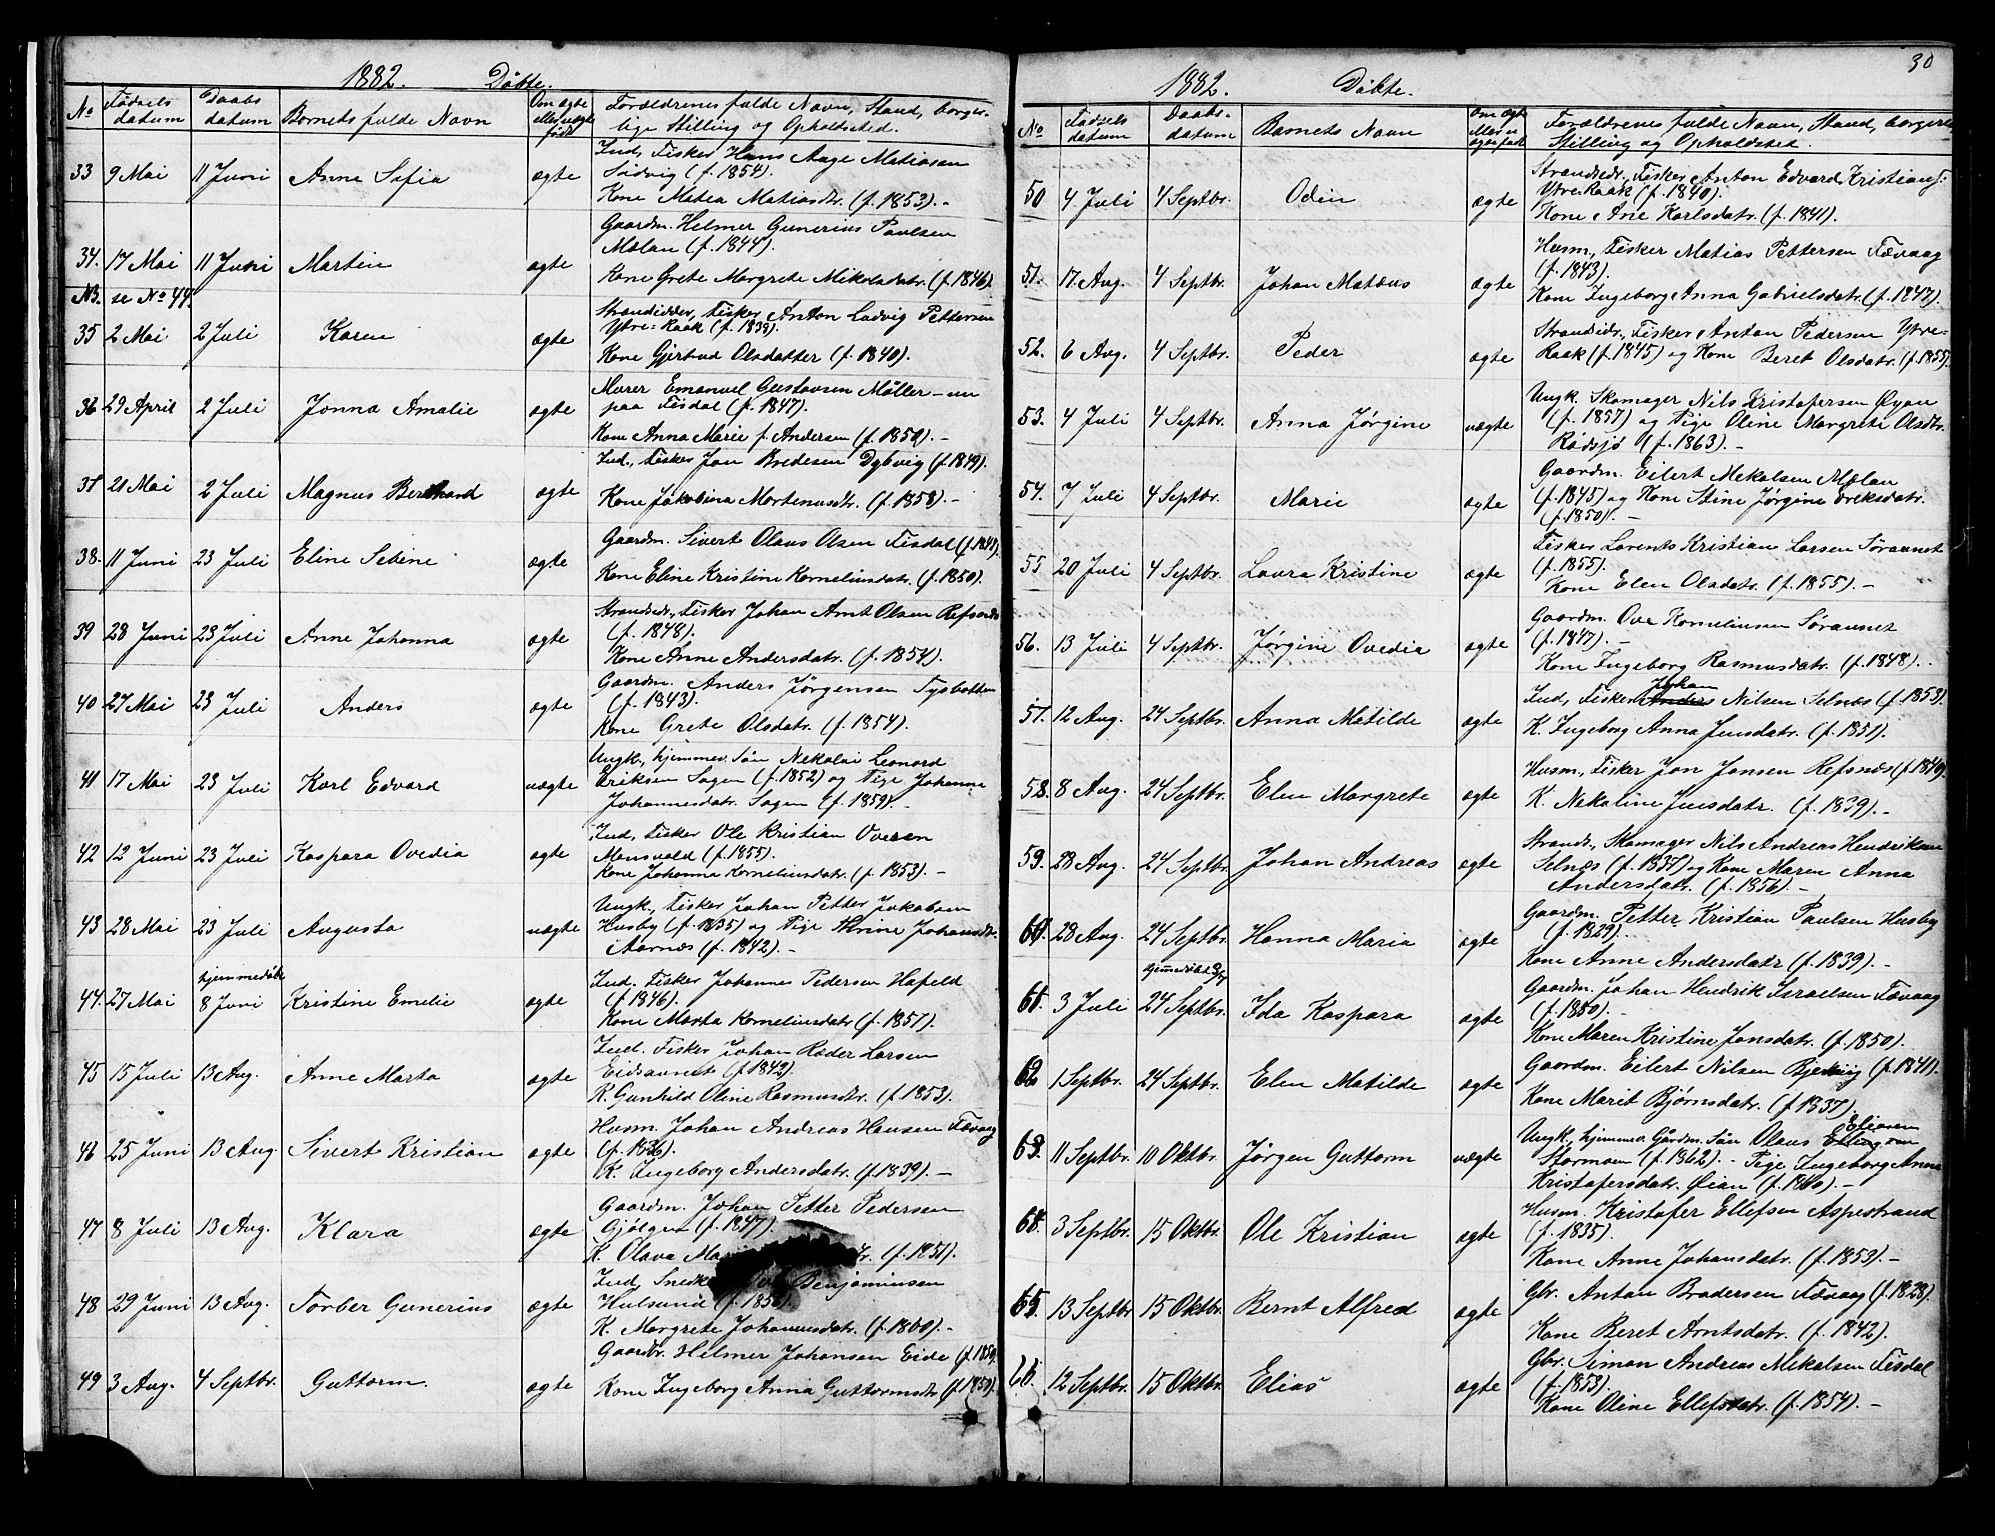 1882. Døbte.
No Fødsels datum Daabs datum Barnets fulde Navn Om ægte eller uægte født Forældrenes fulde Navn, Stand, borger-
lige Stilling og Opholdssted.
33 9 Mai 11 Juni Anne Sofia ægte Ind, Fisker Hans Aage Matiasen
Sidvig (f. 1854).
Kone Matea Matiasdtr. (f. 1853). -
34. 17 Mai 11 Juni Martin ægte Gaardm. Helmer Gunerius Paulsen
Mælan (f. 1844).
Kone Grete Margrete Mikalsdatr. (f. 1846)
NB. se No 44.
35 2 Mai 2 Juli Karen ægte Strandsidder, Fisker Anton Ludvig Pettersen
Ytre-Raak (f. 1839).
Kone Gjertrud Olsdatter (f. 1840).
36 29 April 2 Juli Jonna Amalie ægte Murer Emanuel Gustavsen Møller - nu
paa Fisdal (f. 1847).
Kone Anna Marie f. Andersen (f. 1850). -
37 21 Mai 2 Juli Magnus ægte Ind., Fisker Jon Bredesen Dybvig (f. 1849).
Kone Jakobina Mortenusdtr. (f. 1858). -
38. 11 Juni 23 Juli Eline Sebine ægte Gaardm. Sivert Olaus Olsen Fisdal
Kone Eline Kristine Korneliusdatr. (f. 1850).
39 28 Juni 23 Juli Anne Johanna ægte Strandsidr., Fisker Johan Arnt Olsen Refsnæs
(f. 1848).
Kone Anne Andersdatr. (f. 1854).
40 27 Mai 23 Juli Anders ægte Gaardm. Anders Jørgensen Tysbotten
(f. 1843).
Kone Grete Olsdatr. (f. 1854).
41 17 Mai 23 Juli Karl Edvard uægte Ungk., hjemmev. Søn Nekolai Leonard
Eriksen Sagen (f. 1852) og Pige Johanna
Johannesdatr. Sagen (f. 1859). -
42 12 Juni 23 Juli Kaspara Ovedia ægte Ind, Fisker Ole Kristian Ovesen
Monsvold (f. 1855).
Kone Johanna Korneliusdatr. (f. 1853). -
43 28 Mai 23 Juli Augusta uægte Ungk., Fisker Johan Petter Jakobsen
Husby (f. 1835) og Pige Johansdtr.
Aarnæs (f. 1842). -
44. 27 Mai hjemmedøbt 8 Juni Kristine Emelie ægte Ind. Fisker Johannes Pedersen Hafeld
(f. 1846).
Kone Marta Korneliusdatr (f. 1851).
45 15 Juli 13 Aug. Anne Marta ægte Ind. Fisker Johan Ræder Larsen
Eidsaunet (f. 1842).
K. Gunhild Oline Rasmusdtr. (f. 1853).
46 25 Juni 13 Aug. Sivert Kristian ægte Husm. Johan Andreas Hansen Fævaag
(f. 1836).
K. Ingeborg Andersdatr. (f. 1839). -
47 8 Juli 13 Aug. Klara ægte Gaardm. Johan Petter Pedersen
Gjølgen (f. 1847).
K. Olava (f. 1851).
48 29 Juni 13 Aug. Torber Gunerius ægte Ind, Benjaminsen
Hulsund
K. Margrete Johannesdatr. (f. 1860). -
49 3 Aug. 4 Septbr. Guttorm. ægte Gaardbr. Helmer Johansen Eide
Kone Ingeborg Anna Guttormsdtr (f. 1850).
30
1882. Døbte.
No Fødsels datum Daabs- datum Barnets Navn Om ægte eller u- ægte født Forældrenes fulde Navn, Stand, borgerl.
Stilling og Opholdssted.
50 4 Juli 4 Septbr. Odin ægte Strandsidr., Fisker Anton Edvard Kristians.
Ytre-Raak (f. 1840).
Kone Arie Karlsdatr. (f. 1841).
51. 17 Aug. 4 Septbr. Johan Matæus ægte Husm., Fisker Matias Pettersen Fævaag
(f. 1843).
Kone Ingeborg Anna Gabrielsdatr. (f. 1847).
52. 6 Aug. 4 Septbr. Peder ægte Strandsidr., Fisker Anton Pedersen Ytre-
Raak (f. 1845) og Kone Beret Olsdatr. (f. 1855).
53. 4 Juli 4 Septbr. Anna Jørgine uægte Ungk. Skomager Nils Kristofersen Øyan
(f. 1857) og Pige Oline Margrete Olsdtr.
Rødsjø (f. 1863). -
54. 7 Juli 4 Septbr. Marie ægte Gaardm. Eilert Mekalsen Mælan
(f. 1845) og Kone Stine Jørgine Dreksdatr.
(f. 1850). -
55 20 Juli 4 Septbr. Laura Kristine ægte Fisker Lorents Kristian Larsen Søraunet
(f. 1855).
Kone Elen Olsdatr. (f. 1855). -
56. 13 Juli 4 Septbr. Jørgine Ovedia ægte Gaardm. Ove Korneliusen Søraunet
(f. 1847). -
Kone Ingeborg Rasmusdatr. (f. 1848). -
57. 12 Aug. 24 Septbr. Anna Matilde ægte Ind, Fisker Johan Nilsen Selnæs (f. 1853)
K. Ingeborg Anna Jensdatr. (f. 1851).
58. 8 Aug. 24 Septbr. Elen Margrete ægte Husm., Fisker Jon Jonsen Refsnæs (f. 1840).
K. Nekoline Jensdatr. (f. 1839). -
59. 28 Aug. 24 Septbr. Johan Andreas ægte Strands., Skomager Nils Andreas Hendriksen
Selnæs (f. 1837) og Kone Maren Anna
Andersdatr. (f. 1856). -
60. 28 Aug. 24 Septbr. Hanna Maria ægte Gaardm. Petter Kristian Paulsen Husby
(f. 1829).
Kone Anne Andersdatr (f. 1839). -
61. 3 Juli hjemmedøbt 9/7 24 Septbr. Ida Kaspara ægte Gaardm. Johan Hendrik Israelsen Fævaag
(f. 1850). -
Kone Maren Kristine Jonsdatr. (f. 1850).
62 1 Septbr. 24 Septbr. Elen Matilde ægte Gaardm. Eilert Nilsen (f. 1841).
Kone Marit Bjørnsdatr. (f. 1837)
63. 11 Septbr. 10 Oktbr. Jørgen Guttorm uægte Ungk., hjemmev. Gårdm. Søn Olaus Eliasen
Stormoen (f. 1862). - Pige Ingeborg Anna
Kristofersdatr. Øien (f. 1860). -
64. 3 Septbr. 15 Oktbr. Ole Kristian ægte Husm. Kristofer Ellefsen Aspestrand
(f. 1835).
Kone Anne Johansdatr. (f. 1853). -
65. 13 Septbr 15 Oktbr. Bernt Alfred ægte Gbr. Anton Bradersen Fævaag (f. 1828).
Kone Beret Arntsdatr. (f. 1842).
66. 12 Septbr. 15 Oktbr. Elias ægte Gbr. Simon Andreas Mekalsen Fisdal
(f. 1853).
Kone Oline Ellefsdatr. (f. 1854). -